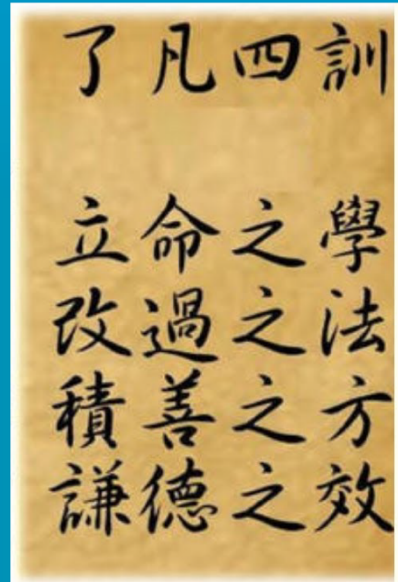 了凡四訓
立命之學
改過之法
積善之方
謙德之效